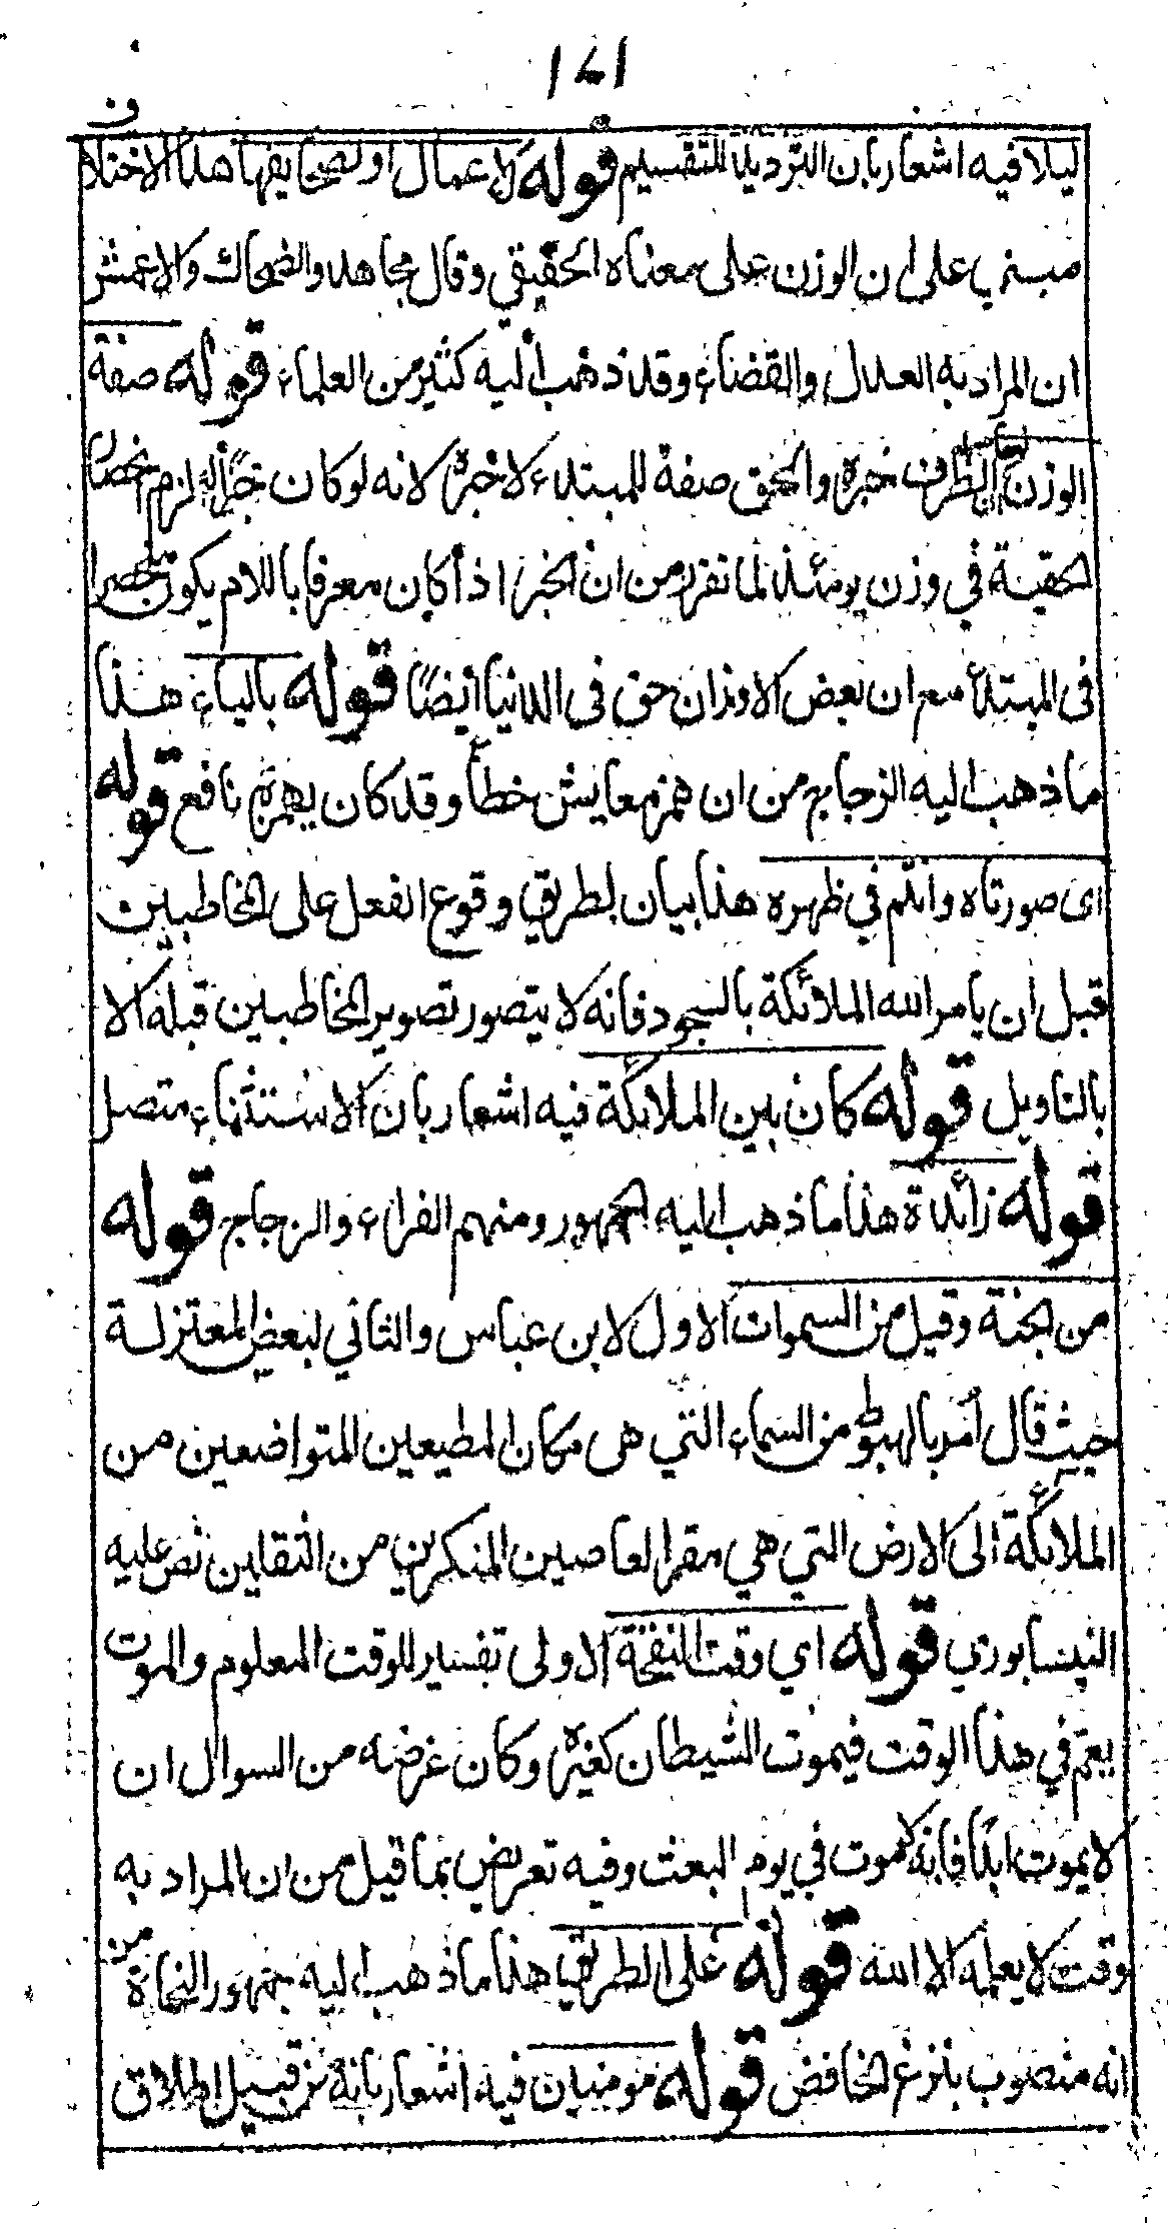 ١٤١
ليلا فيه اشعار بان الترديد للتقسيم قوله للاعمال او لصحايفها هذا الاختلاف
مبني على ان الوزن على معناه الحقيقي وقال مجاهد والضحاك والاعمش
ان المراد به العدل والقضاء وقد ذهب اليه كثير من العلماء قوله صفة
الوزن اي الظرف خبره والحق صفة للمبتدء لا خبره لانه لو كان خبرا له لزم انحصار
الحقية في وزن يومئذ لما تقرر من ان الخبر اذا كان معرفا باللام يكون منحصرا
فى المبتدأ مع ان بعض الاوزان حق فى الدنيا ايضًا قوله بالياء هذا
ما ذهب اليه الزجاج من ان همز معايش خطأ وقد كان يهمزه نافع قوله
اى صورناه وانتم في ظهره هذا بيان لطريق وقوع الفعل على المخاطبين
قبل ان يامر الله الملائكة بالسجود فانه لا يتصور تصوير المخاطبين قبله الا
بالتاويل قوله كان بين الملائكة فيه اشعار بان الاستثناء متصل
قوله زائدة هذا ما ذهب اليه الجمهور ومنهم الفراء والزجاج قوله
من الجنة وقيل من السموات الاول لابن عباس والثاني لبعض المعتزلة
حيث قال امر بالهبوط من السماء التي هى مكان المطيعين المتواضعين من
الملائكة الى الارض التي هي مقر العاصين المنكرين من الثقلين نص عليه
النيسابوري قوله اي وقت النفخة الاولى تفسير للوقت المعلوم والموت
يعم في هذا الوقت فيموت الشيطان كغيره وكان غرضه من السوال ان
لا يموت ابدا فانه لا موت في يوم البعث وفيه تعريض بما قيل من ان المراد به
وقت لا يعلمه الا الله قوله على الطريق هذا ما ذهب اليه جمهور النحاة من
انه منصوب بنزع الخافض قوله مومنين فيه اشعار بانه من قبيل اطلاق